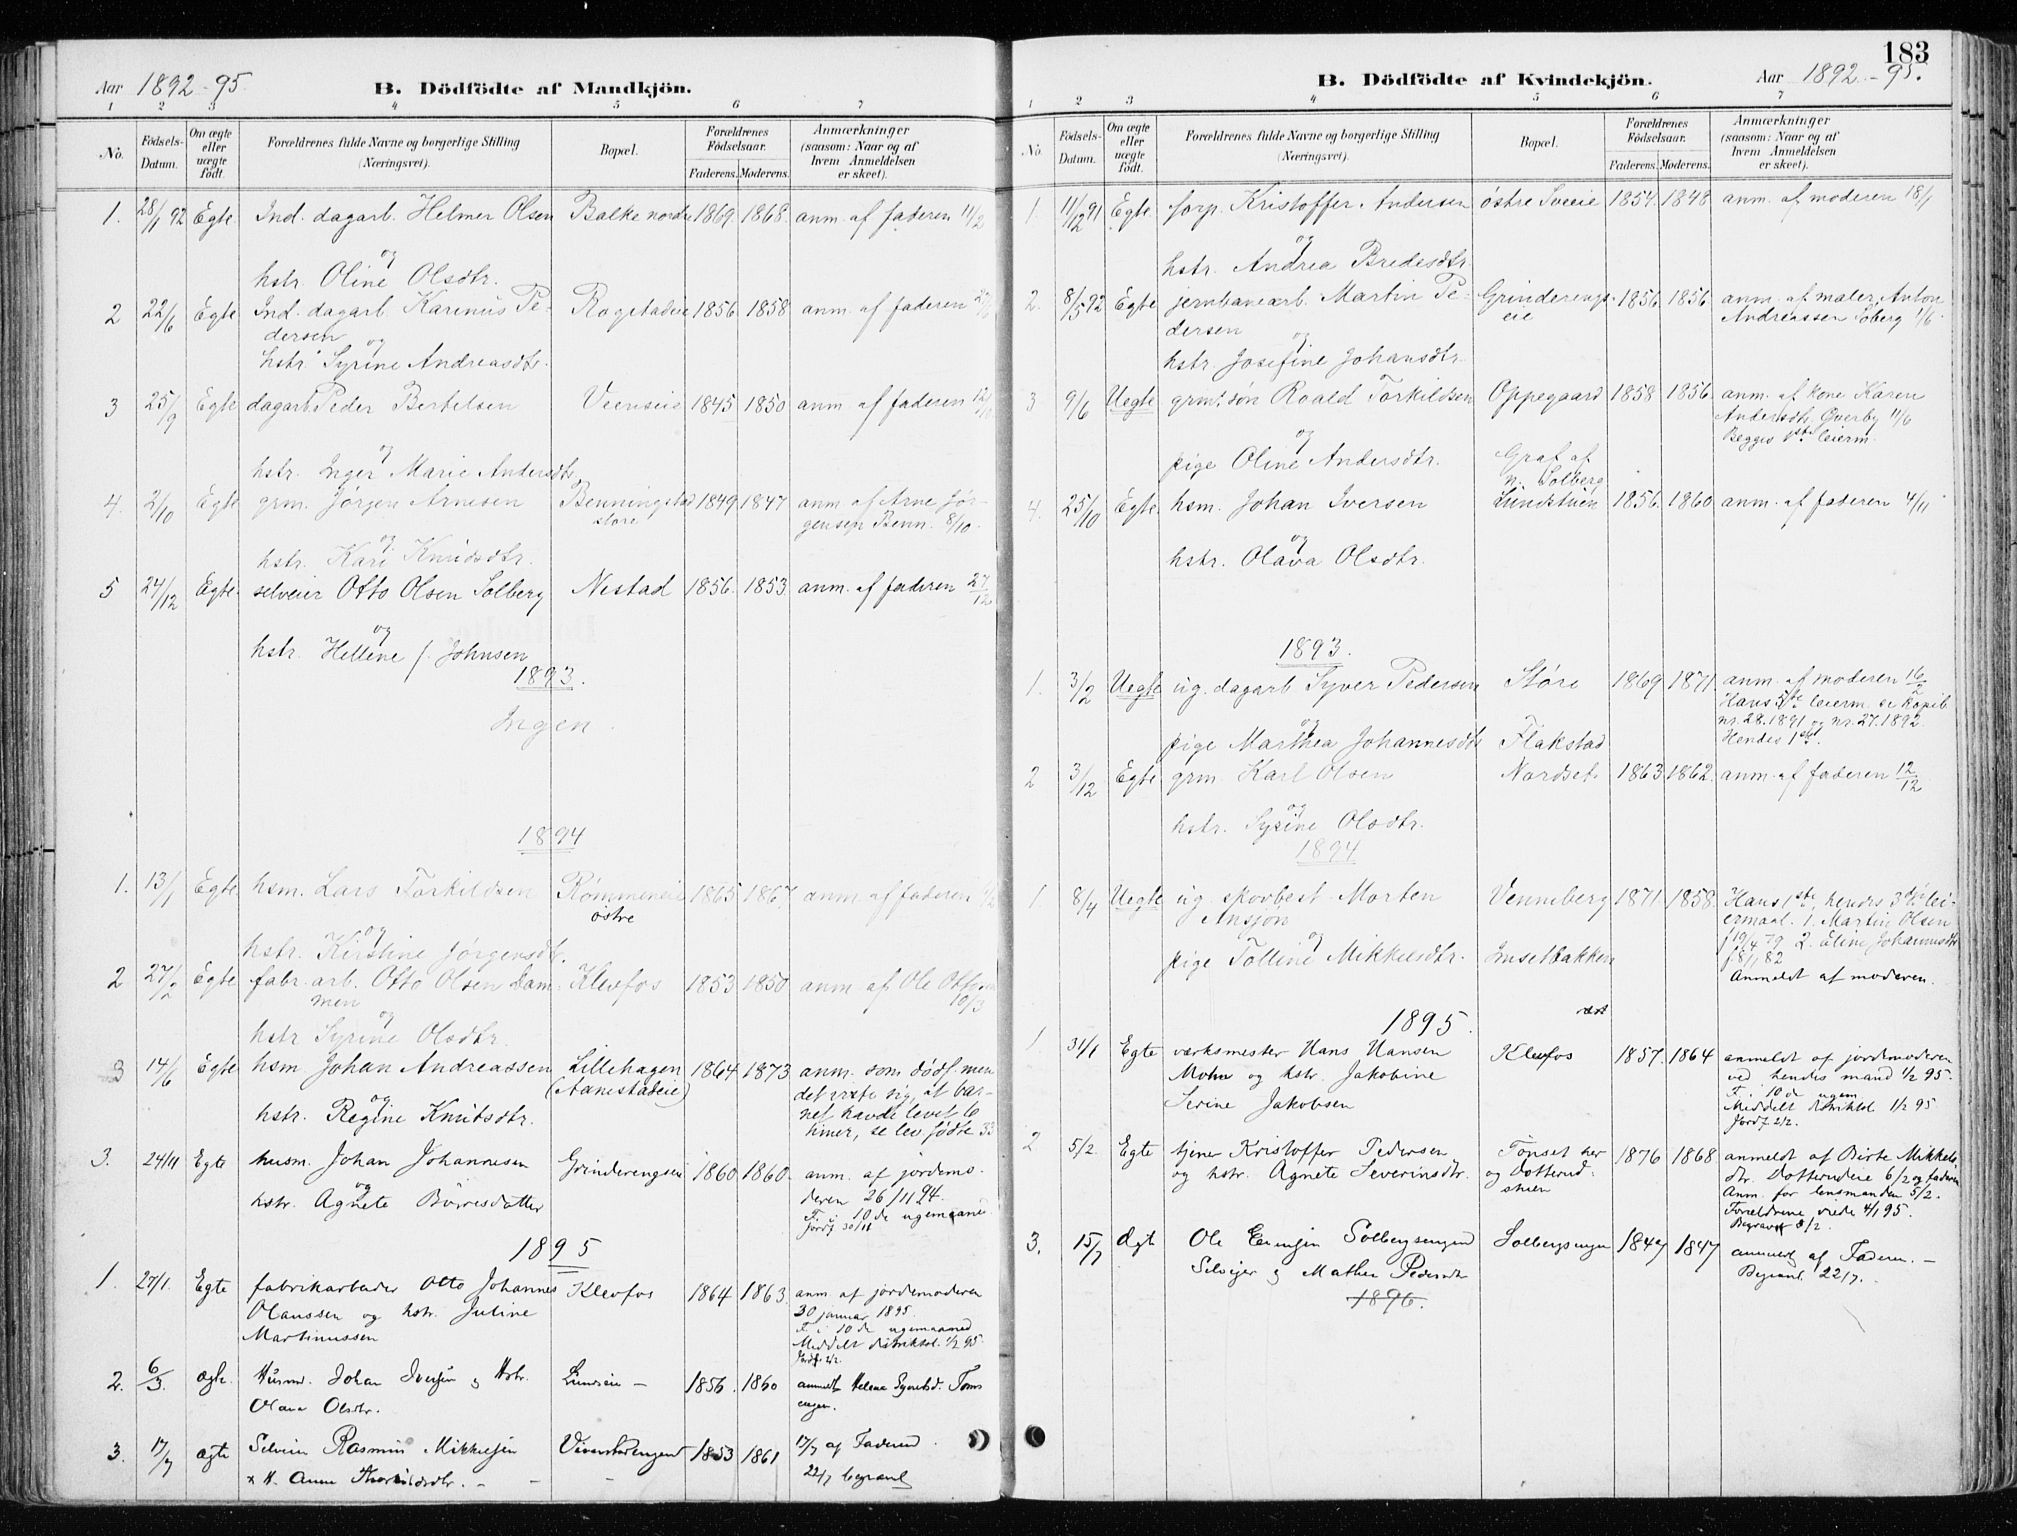 Aar 1892-95. B. Dödfödte af Mandkjön.
1 2 3 4 5 6 7
No. Födsels-Datum. Om ægte eller uægte födt. Forældrenes fulde Navne og borgerlige Stilling (Næringsvei). Bopæl. Forældrenes Födselsaar. Faderens. Moderens. Anmærkninger (saasom: Naar og af hvem Anmeldelsen er skeet).
1. 28/1 92 Egte. Ind. dagarb. Helmer Olsen Balke nordre 1869. 1868. anm. af faderen 11/2
og
hstr. Oline Olsdtr.
2 22/6 Egte Ind. dagarb. Karinus Pe- Rogstadeie 1856 1858. anm. af faderen
dersen og
hstr. Syrine Andreasdtr.
3 25/9 Egte dagarb Peder Bertelsen Veenseie 1845 1850 anm. af faderen 12/10
og
hstr. Inger Marie Andersdtr.
4. 2/10 Egte grm. Jørgen Arnesen Benningstad 1849 1847 anm. af Arne Jør-
store gensen Benn. 8/10.
og
hstr. Kari Knudsdtr.
5 24/12 Egte. selveier Otto Olsen Solberg Nestad 1856. 1853. anm. af faderen 27/12
og
hstr. Hellene f. Johnsen
1893.
Ingen.
1894
1. 13/1 Egte hsm. Lars Torkildsen Rømmeneie 1865 1867. anm. af faderen
østre
og
hstr. Kirstine Jørgensdtr.
2 27/2 Egte fabr. arb. Otto Olsen Dam- Klevfos 1853 1850. anm. af Ole Ottosen
men 10/3
og
hstr Syrine Olsdtr.
3 14/6 Egte hsm Johan Andreassen Lillehagen 1864 1873. anm. som dødf. men
og (Aanestadeie) det viste sig, at bar-
hstr. Regine Knutsdtr. net havde levet 6
timer, se lev. fødte 33
3. 24/11 Egte husm. Johan Johannesen Grinderengseie 1860 1860. anm. af jordemo-
og deren 26/11 94.
hstr. Agnete Börresdatter F. i 10de ugemaaned
Jordf 30/11
1895
1. 27/1. Egte fabrikarbeider Otto Johannes Klevfos 1864 1863. anm af jordemoderen
Olaussen og hstr. Juline 30 januar 1895.
Martinussen F. i 10de ugemaaned
Meddelt distriktsl. 1/2 95.
Jordf. 2/2.
2. 6/3. ægte. Husmd. Johan Iversen og Hstr. Lundseie – 1856. 1860 anmeldt Helene Syversd. Toms
Olava Olsdtr. engen.
3. 17/7 ægte Selveier Rasmus Mikkelsen 1853 1861 17/7 af Faderen.
– – 22/7 begravet
183
B. Dödfödte af Kvindekjön. Aar 1892-95.
1 2 3 4 5 6 7
No. Födsels-Datum. Om ægte eller uægte födt. Forældrenes fulde Navne og borgerlige Stilling (Næringsvei). Bopæl. Forældrenes Födselsaar. Faderens. Moderens. Anmærkninger (saasom: Naar og af hvem Anmeldelsen er skeet).
1. 11/12 91 Egte. forp. Kristoffer Andersen østre Sveeie 1854. 1848 anm. af moderen 18/1
og
hstr. Andrea Bredesdtr.
2. 8/5 92 Egte jernbanearb. Martin Pe- Grinderengs- 1856 1856 anm. af maler Anton
dersen eie Andreassen Soberg 1/6.
og
hstr. Josefine Johansdtr.
3 9/6 Uegte grm. søn Roald Torkildsen Oppegaard 1858 1856. anm. af kone Karen
Andersdtr. Gverby 11/6
og Begges 1ste leierm.
pige Oline Andersdtr. Graf af
n. Solberg
4. 25/10 Egte. hsm. Johan Iversen Lundstuen 1856. 1860 anm. af faderen 4/11
og
hstr. Olava Olsdtr.
1893.
1. 3/2 Uegte ug. dagarb Syver Pedersen Støre 1869 1871 anm. af moderen 16/2
Hans 5te leierm. se Kopib.
og nr. 28. 1891 og nr. 27. 1892.
pige Marthea Johannesdtr. Flakstad Hendes 1ste.
2 3/12 Egte grm. Karl Olsen Nordset. 1863. 1862. anm. af faderen 12/12
og
hstr. Syrine Olsdtr.
1894
1. 8/4 Uegte ug. skovbest Morten Venneberg 1871 1858. Hans 1ste, hendes 3die lei-
Ansjøn ermaal. 1. Martin Olsen
og f 19/4 79 2. Eline Johannesdtr
pige Tolline Mikkelsdtr. Insetbakken f 8/1 82
Anmeldt af moderen.
1895.
1. 31/1 Egte værksmester Hans Hansen Klevfos 1857. 1864 anmeldt af jordemoderen
Mohn og hstr. Jakobine ved hendes mand 1/2 95.
Serine Jakobsen F. i 10de ugem
Meddelt distriktsl. 1/2 95
Jordf 2/2.
2 5/2. Egte tjener Kristoffer Pedersen Tönset her 1876 1868 anmeldt af Birte Mikkels-
og hstr. Agnete Severinsdtr. og Dotterud- dtr. Dotterudeie 6/2 og faderen
stuen Anm. for lensmanden 5/2.
Forældrene viede 4/1 95.
Begravet 8/2.
3. 15/7 ægt Ole Solbergsengen Solbergsengen 1847 1847 anmeldt af Faderen. –
Selveier og Mathea Pedersdtr Begravet 22/7.
1896.